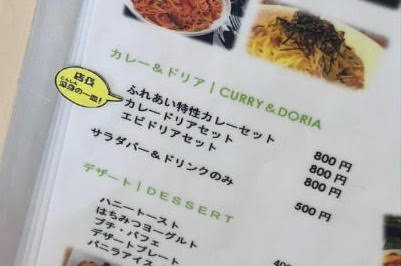 カレー＆ドリア | CURRY&DORIA
店長
の一皿!
ふれあい特性カレーセット 800円
カレードリアセット 800円
エビドリアセット 800円
サラダバー＆ドリンクのみ 500円
デザート | DESSERT
ハニートースト
はちみつヨーグルト
プチ・パフェ
デザートプレート
バニラアイス